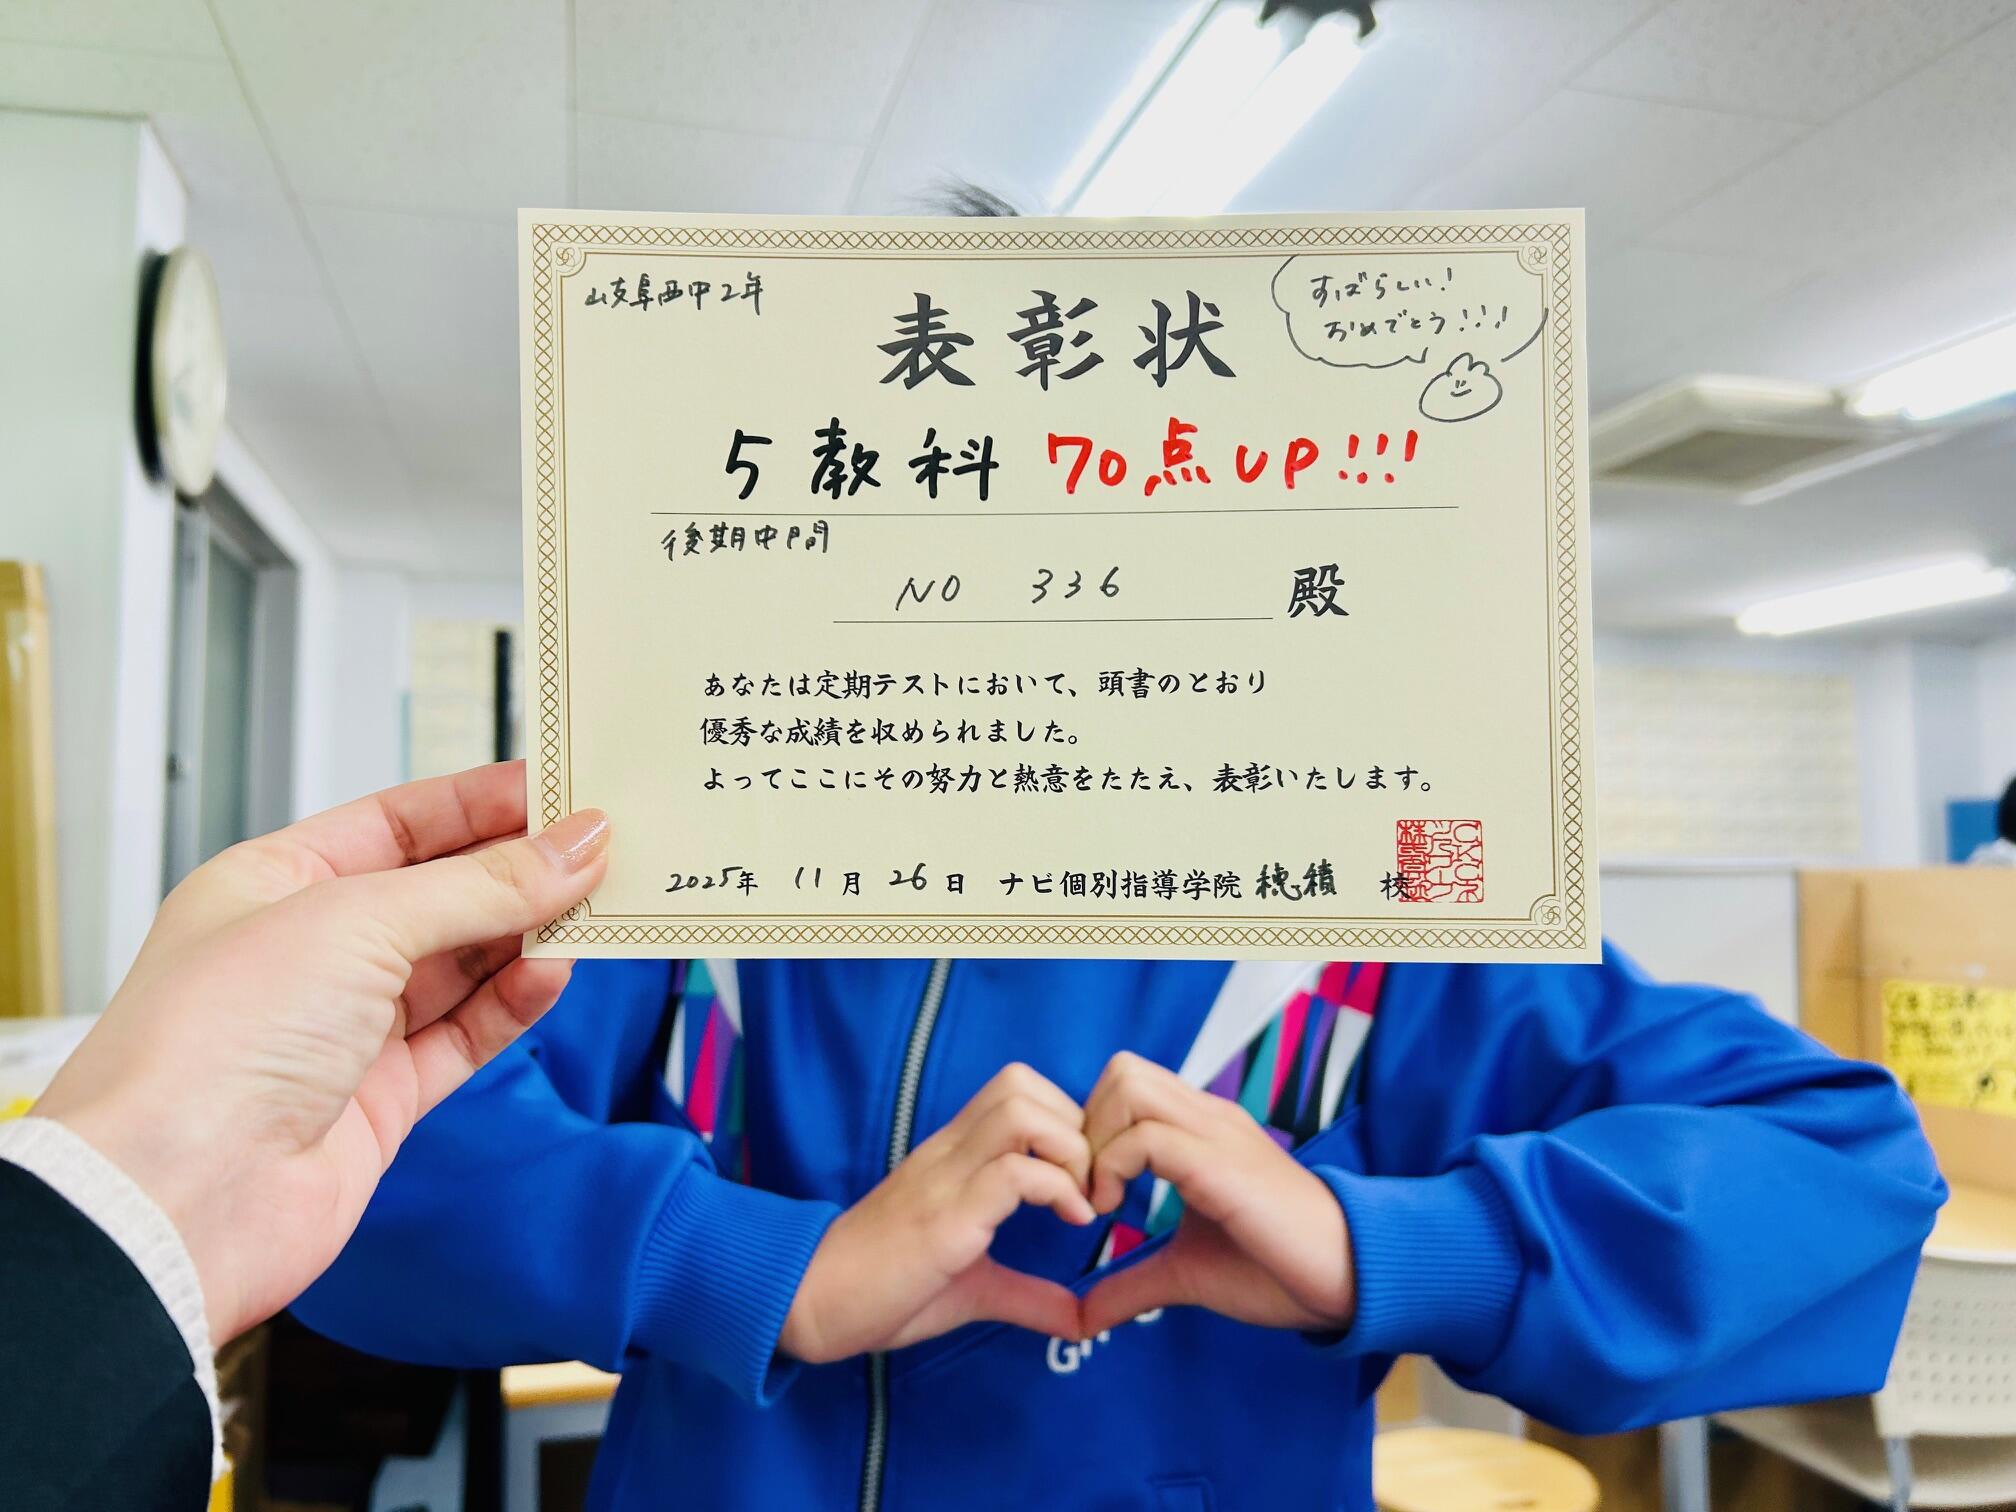 岐阜西中2年
すばらしい!
おめでとう!!!
表彰状
5教科 70点UP!!!
後期中間
NO 336 殿
あなたは定期テストにおいて、頭書のとおり
優秀な成績を収められました。
よってここにその努力と熱意をたたえ、表彰いたします。
2025年 11月 26日 ナビ個別指導学院 穂積 校